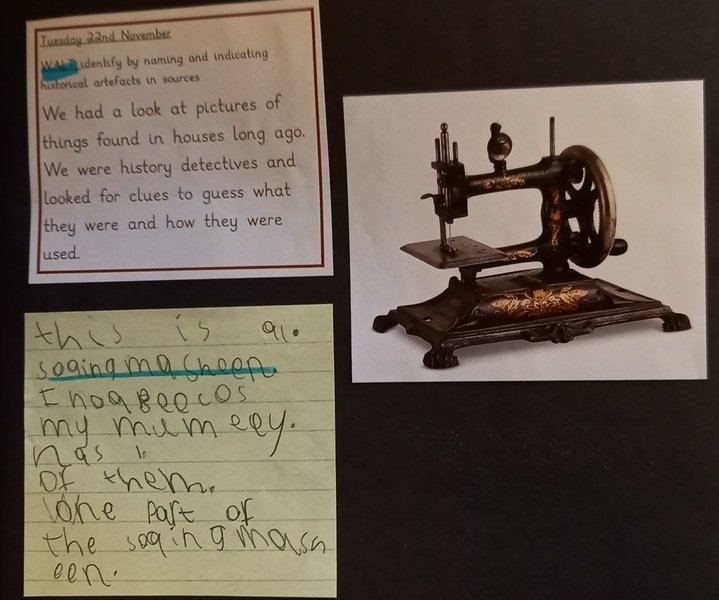 Tuesday 22nd November
WALT identify by naming and indicating
historical artefacts in sources
We had a look at pictures of
things found in houses long ago.
We were history detectives and
looked for clues to guess what
they were and how they were
used.
this is a
sogingmasheen
my mum
has 1
of them.
one part of
the soqingmash
een.